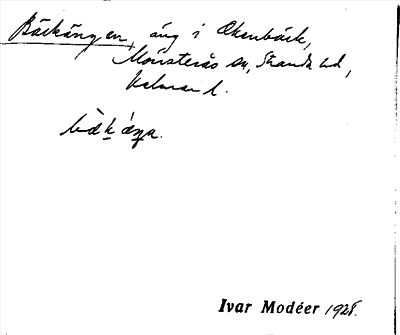 Bäckängen, äng i Åkenbäck,
Mönsterås sn, Stranda hd,
Kalmar l.
bä̀káŋa.
Ivar Modéer 1928.